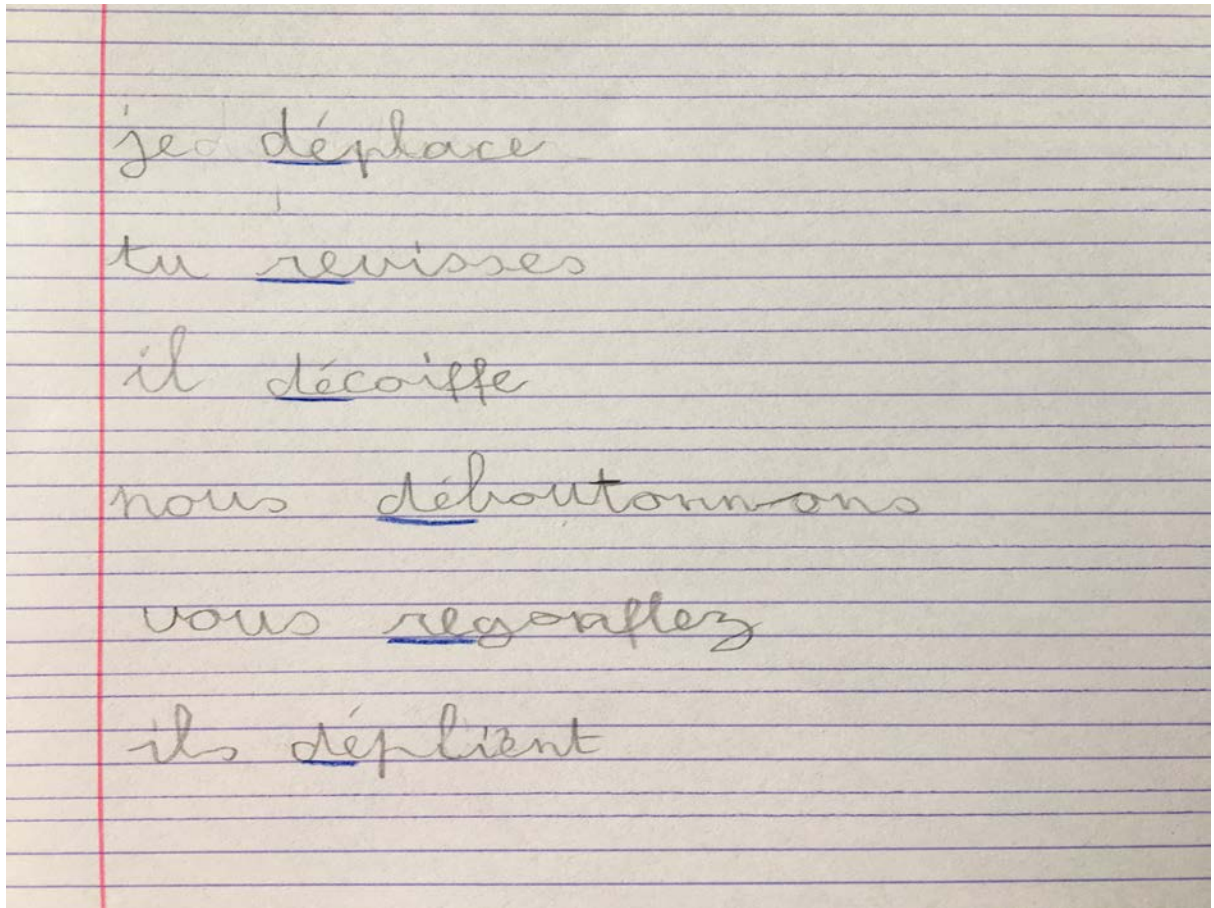 je déplace
tu revisses
il décoiffe
nous déboutonnons
vous regonflez
ils déplient